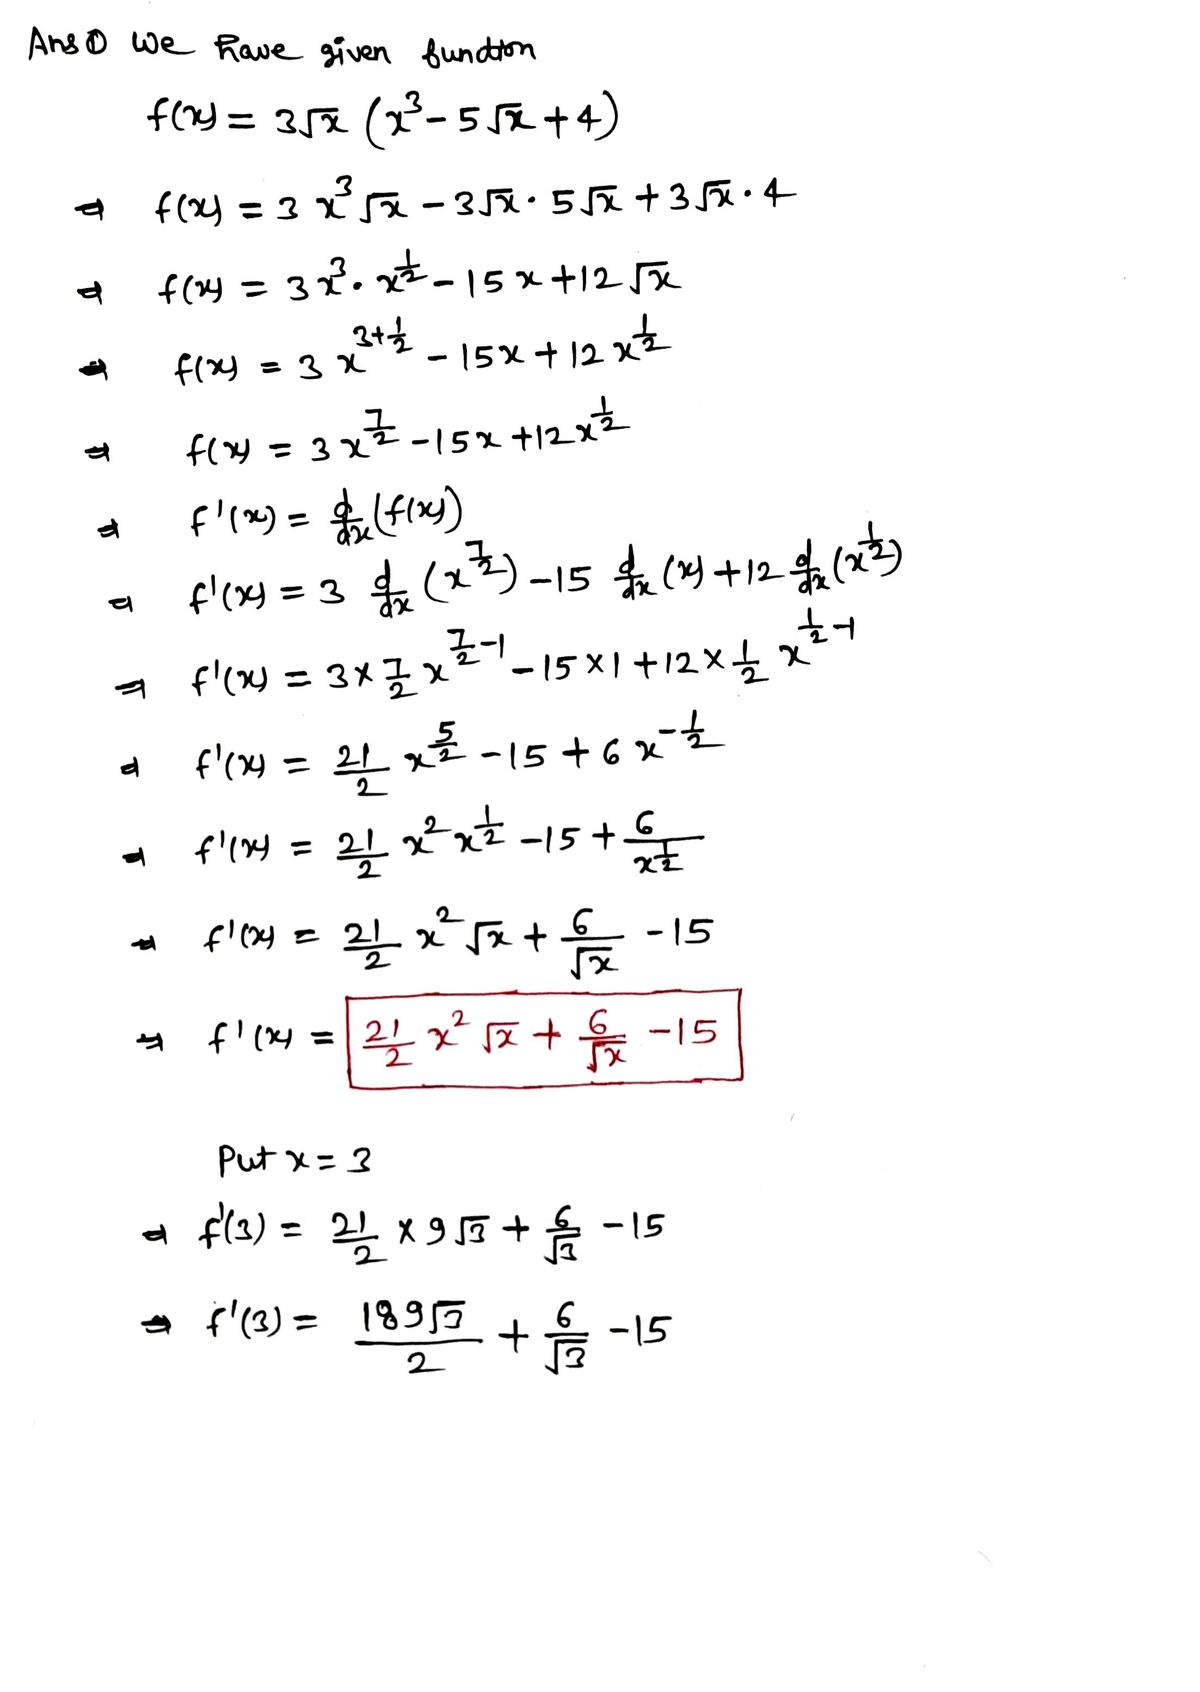 Ans ① We have given function
f(x) = 3√x (x³ - 5√x + 4)
⇒ f(x) = 3 x³ √x - 3√x · 5√x + 3√x · 4
⇒ f(x) = 3x³ · x^(1/2) - 15x + 12√x
⇒ f(x) = 3 x^(3+1/2) - 15x + 12 x^(1/2)
⇒ f(x) = 3 x^(7/2) - 15x + 12x^(1/2)
⇒ f'(x) = d/dx (f(x))
⇒ f'(x) = 3 d/dx (x^(7/2)) - 15 d/dx (x) + 12 d/dx (x^(1/2))
⇒ f'(x) = 3 × 7/2 x^(7/2 - 1) - 15 × 1 + 12 × 1/2 x^(1/2 - 1)
⇒ f'(x) = 21/2 x^(5/2) - 15 + 6 x^(-1/2)
⇒ f'(x) = 21/2 x² x^(1/2) - 15 + 6/x^(1/2)
⇒ f'(x) = 21/2 x² √x + 6/√x - 15
⇒ f'(x) = 21/2 x² √x + 6/√x - 15
Put x = 3
⇒ f'(3) = 21/2 × 9√3 + 6/√3 - 15
⇒ f'(3) = 189√3/2 + 6/√3 - 15